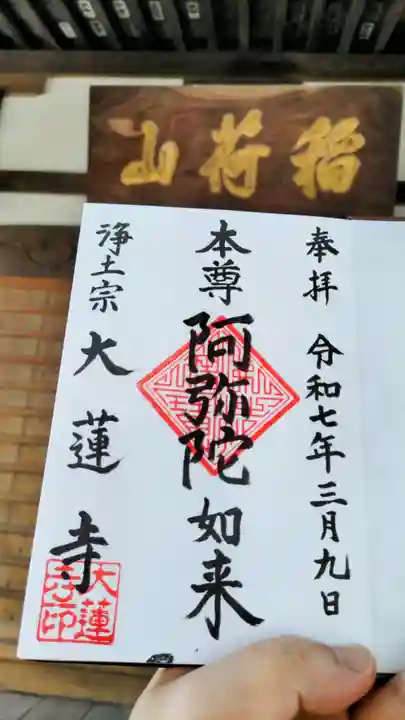 稲荷山
奉拝 令和七年三月九日
本尊 阿弥陀如来
浄土宗 大蓮寺
大蓮寺印